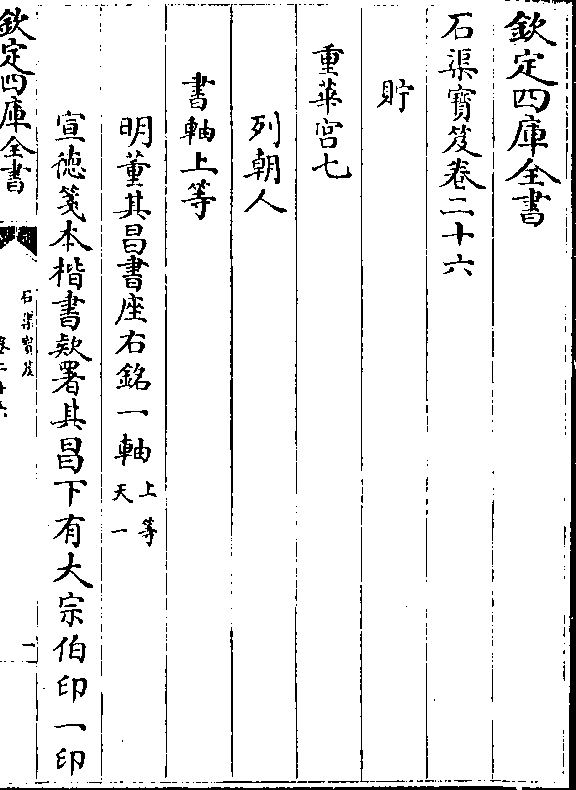 欽定四庫全書
石渠寶笈卷二十六
貯
重華宮七
列朝人
書軸上等
明董其昌書座右銘一軸上等天一
宣德箋本楷書欵署其昌下有大宗伯印一印
欽定四庫全書
石渠寶笈
卷二十六
一